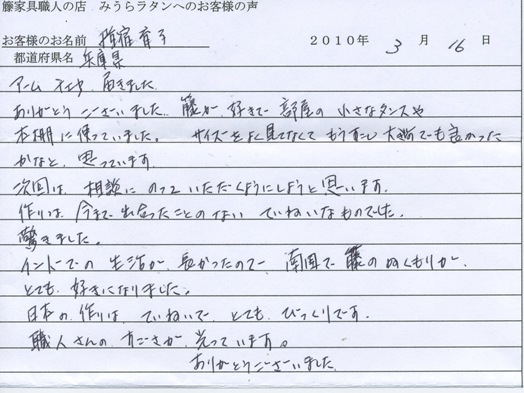 籐家具職人の店 みうらラタンへのお客様の声
お客様のお名前 指宿育子 2010年 3月 16日
都道府県名 兵庫県
アームチェヤ 届きました
ありがとうございました 籐が好きで部屋の小さなタンスや
本棚に使っていました。 サイズをよく見てなくてもう少し大きめでも良かった
かなと、思っています。
次回は、相談にのっていただくようにしようと思います。
作りは今まで出会ったことのないていねいなものでした。
驚きました。
インドでの生活が長かったので南国で籐のぬくもりが、
とても好きになりました。
日本の作りは、ていねいで、とてもびっくりです。
職人さんのすごさが、光っています。
ありがとうございました